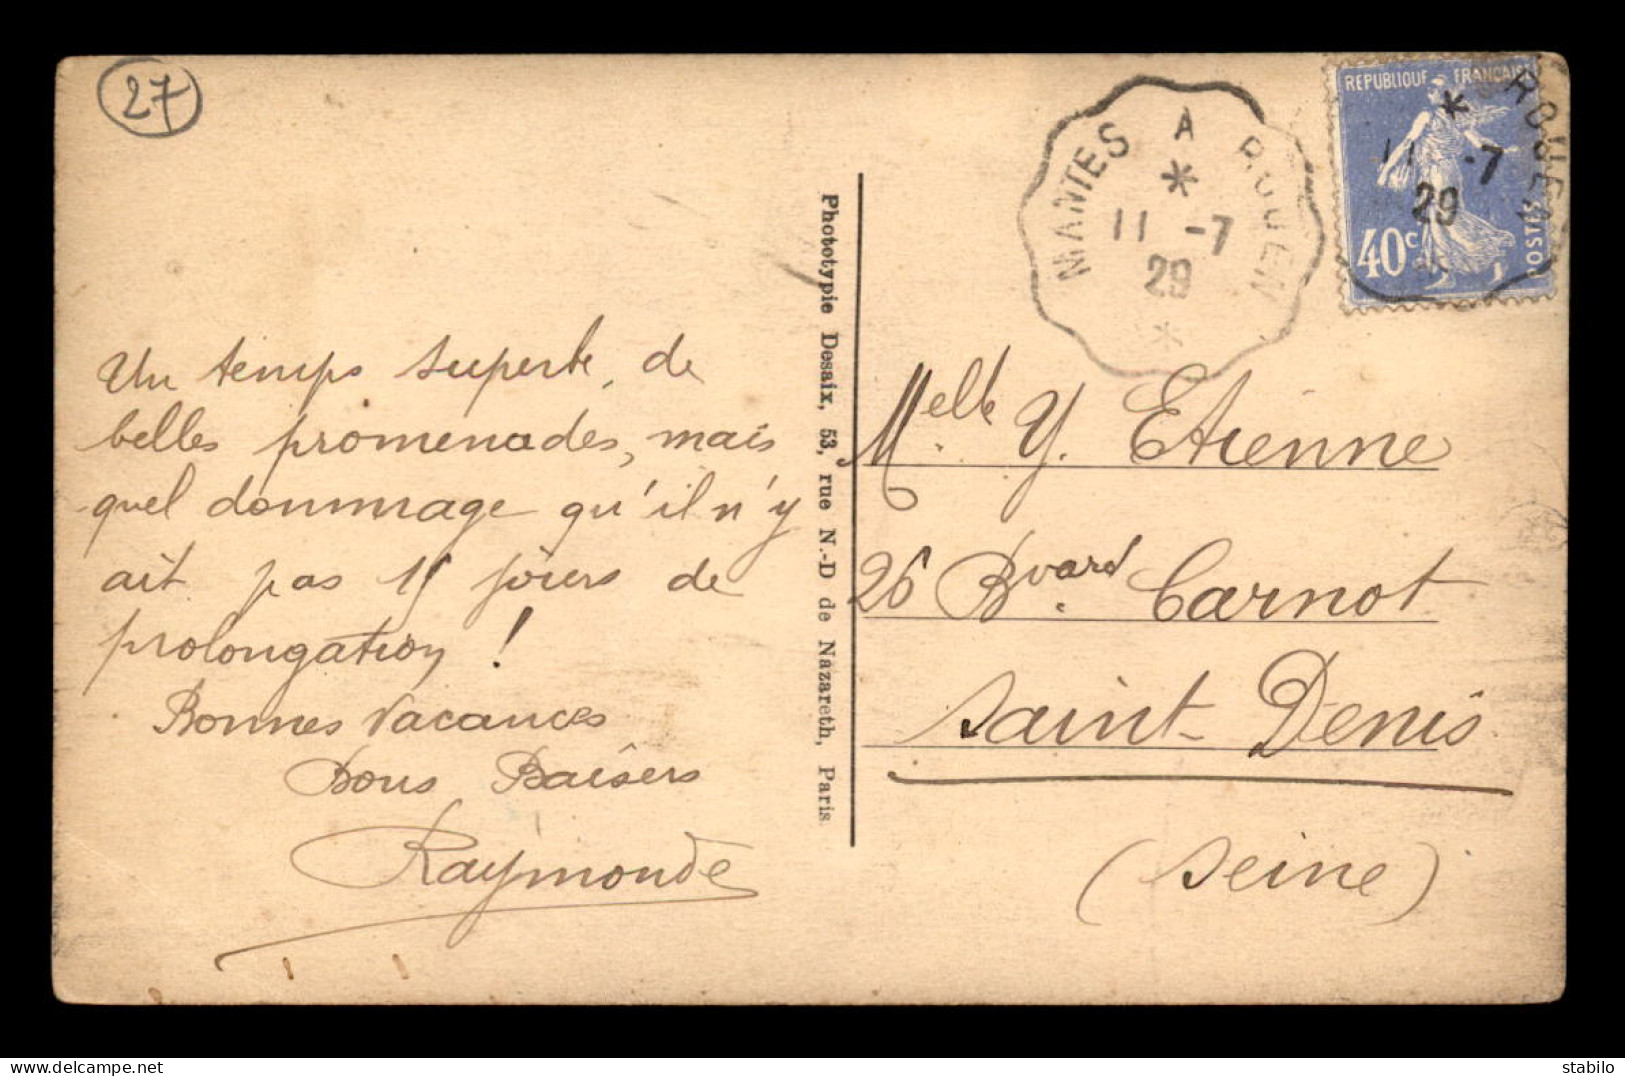 27
Un temps superbe, de
belles promenades, mais
quel dommage qu'il n'y
ait pas 15 jours de
prolongation !
Bonnes Vacances
Bons Baisers
Raymonde
Phototypie Desaix, 53, rue N.-D de Nazareth, Paris.
MANTES A ROUEN
11 -7
29
REPUBLIQUE FRANÇAISE
40c
POSTES
ROUEN
11 -7
29
Melle Y. Etienne
26 Bvard. Carnot
Saint-Denis
(Seine)
delcampe.net
stabilo